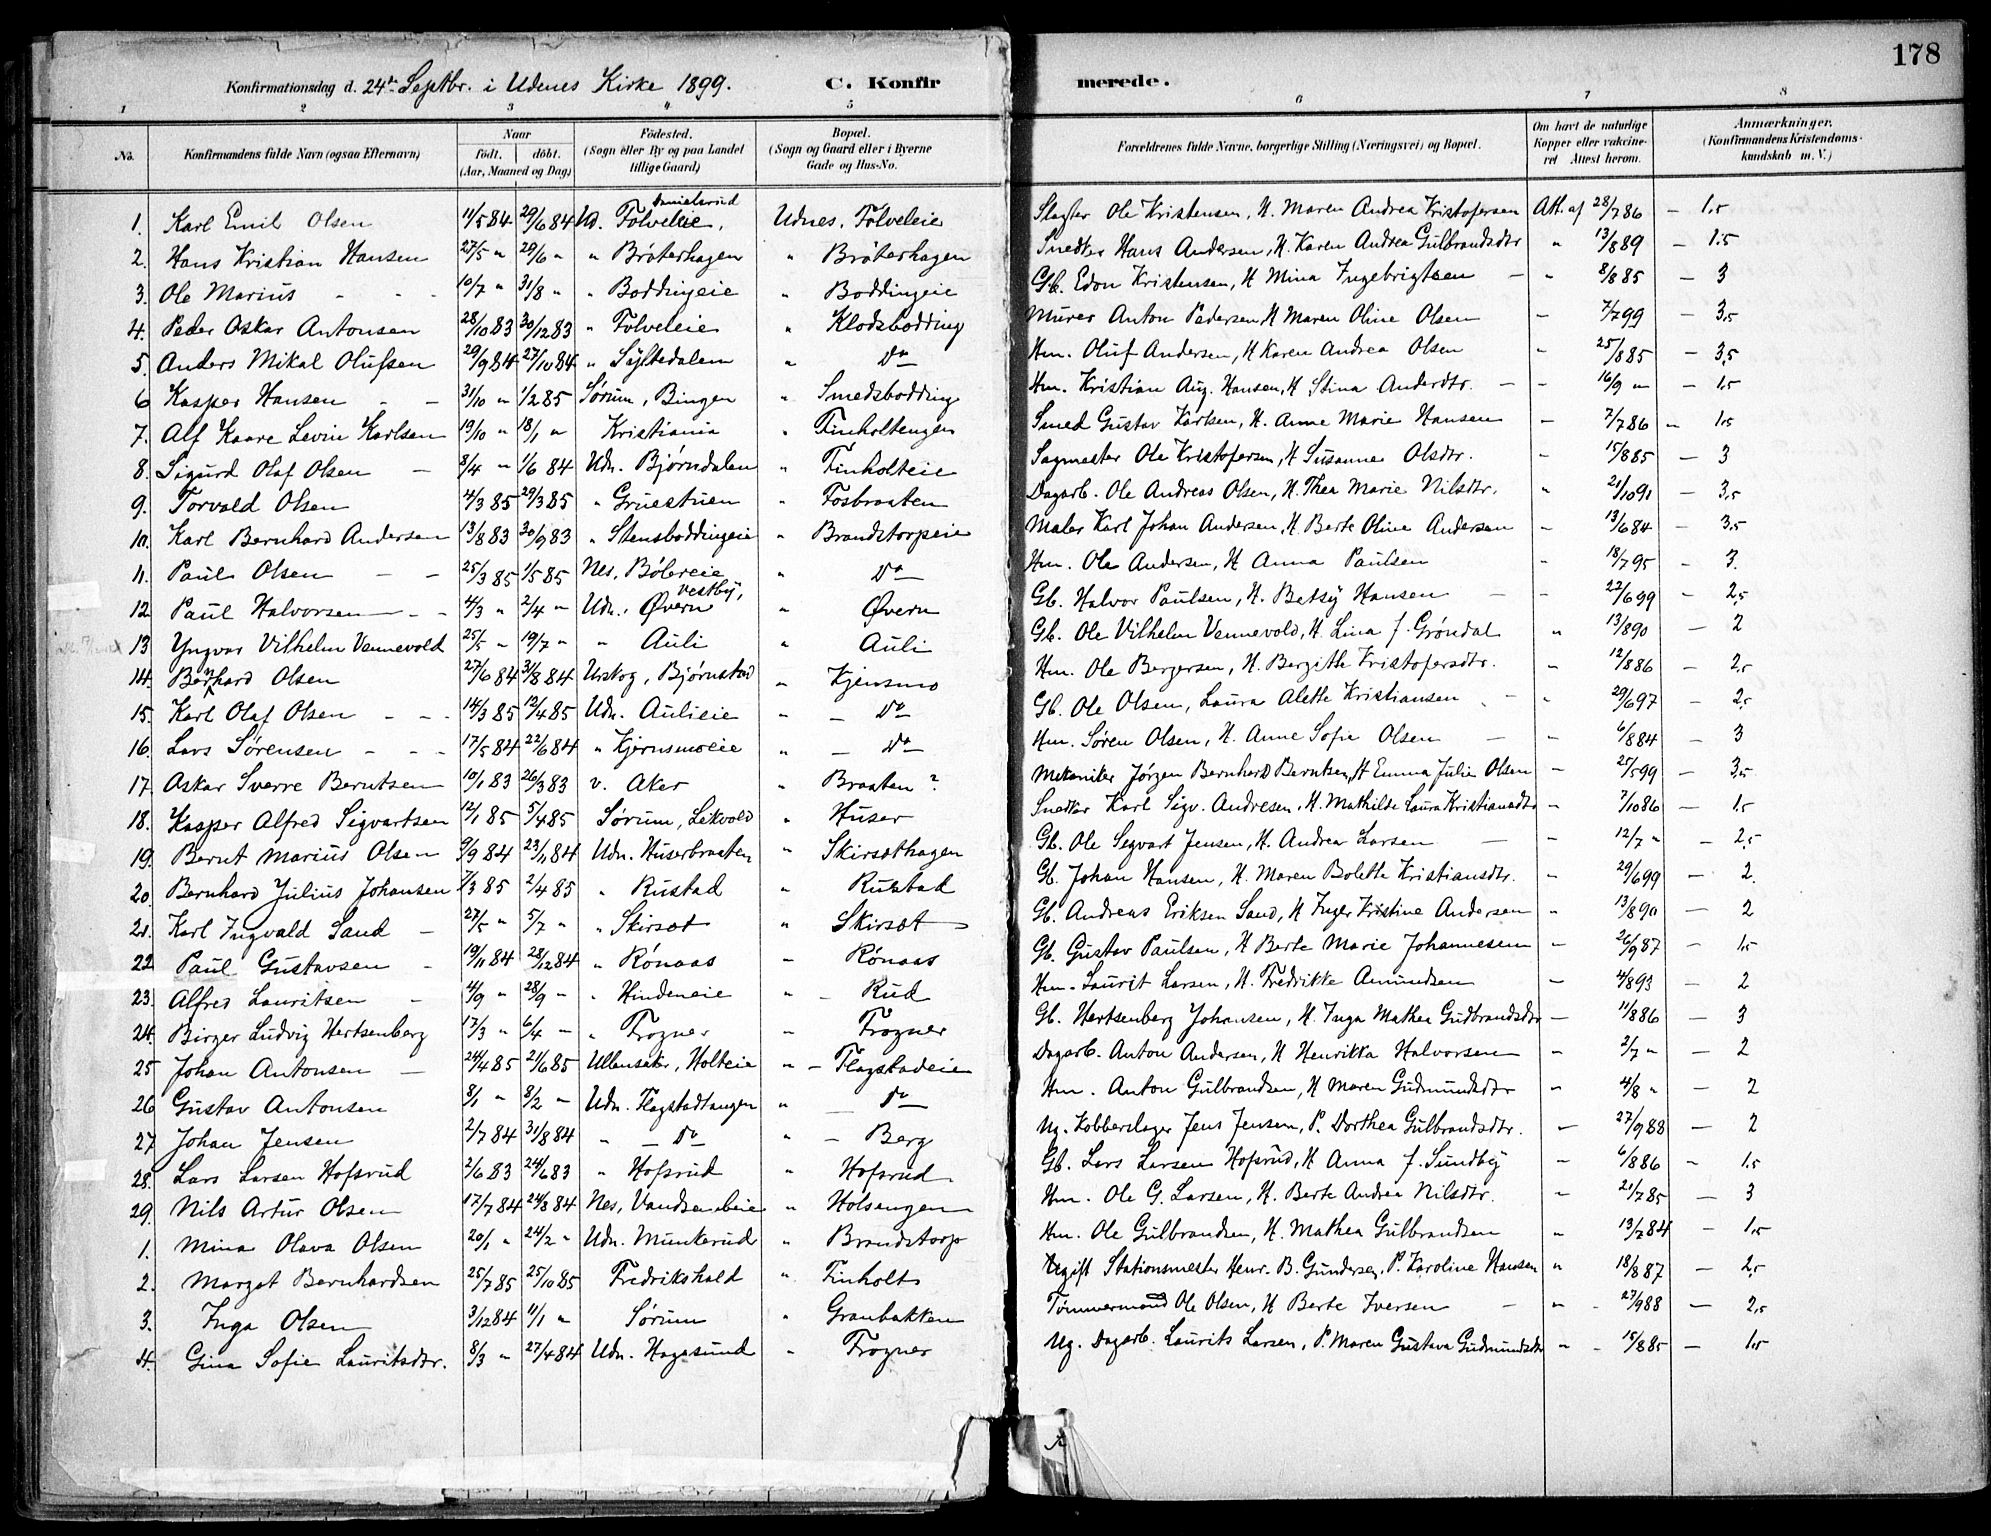 178
Konfirmationsdag d. 24de Septbr. i Udenes Kirke 1899. C. Konfirmerede.
1 2 3 4 5 6 7 8
No. Konfirmandens fulde Navn (ogsaa Efternavn) Naar födt. döbt. (Aar, Maaned og Dag) Födested. (Sogn eller By og paa Landet tillige Gaard) Bopæl. (Sogn og Gaard eller i Byerne Gade og Hus-No. Forældrenes fulde Navne, borgerlige Stilling (Næringsvei) og Bopæl. Om havt de naturlige Kopper eller vakcineret Attest herom. Anmærkninger. (Konfirmandens Kristendomskundskab m. V.)
1. Karl Emil Olsen 11/5 84 29/6 84 Ud. Fölveleie, Danielsrud Udnes, Fölveleie Slagter Ole Kristensen, H. Maren Andrea Kristofersen Att. af 28/7 86 – 1.5
2. Hans Kristian Hansen 27/5 " 29/6 " " Bröterhagen " Bröterhagen Snedker Hans Andersen, H. Karen Andrea Gulbrandsdtr " 13/8 89 – 1.5
3. Ole Marius - - - 10/7 " 31/8 " " Boddingeie " Boddingeie Gb. Edon Kristensen, H Mina Ingebrigtsen – " 8/8 85 – 3
4. Peder Oskar Antonsen 28/10 83 30/12 83 " Folveleie " Klodsbodding Murer Anton Pedersen, H Maren Oline Olsen – 7/7 99 – 3.5
5. Anders Mikal Olufsen 29/9 84 27/10 84 " Syltedalen " Do Hm. Oluf Andersen, H Karen Andrea Olsen " 25/8 85 – 3.5
6 Kasper Hansen - - 31/10 " 1/2 85 Sørum, Bingen " Smedsbodding Hm. Kristian Aug. Hansen, H Stina Andersdtr. – – 16/9 " – 1.5
7. Alf Kaare Levin Karlsen 19/10 " 18/1 " Kristiania " Finholtengen Smed Gustav Karlsen, H. Anne Marie Hansen – 7/7 86 " 1.5
8. Sigurd Olaf Olsen – 8/4 " 1/6 84 Udn. Bjørndalen " Finholteie Sagmester Ole Kristofersen, H Susanne Olsdtr. – 15/8 85 – 3
9. Torvald Olsen 4/3 85 29/3 85 " Gruestuen " Fosbraaten Dagarb. Ole Andreas Olsen, H. Thea Marie Nilsdtr. " 21/10 91 – 3.5
10. Karl Bernhard Andersen 13/8 83 30/9 83 " Stensboddingeie " Brandstorpeie Maler Karl Johan Andersen, H. Berte Oline Andersen – 13/6 84 – 3.5
11. Paul Olsen – – 25/3 85 1/5 85 Nes, Bölereie " Do Hm. Ole Andersen, H Anna Paulsen - 18/7 95 – 3.
12 Paul Halvorsen - - 4/3 " 2/4 " Udn. Øvern Vestby, " Øvern Gb. Halvor Paulsen, H. Betsy Hansen – – 22/6 99 – 2.5
13 Yngvar Vilhelm Vennevold 25/5 " 19/7 " " Auli " Auli Gb. Ole Vilhelm Vennevold, H. Lina f. Gröndal " 13/8 90 – 2
14. Bernhard Olsen 27/6 84 31/8 84 Urskog, Bjørnstad " Kjensmo Hm. Ole Bergersen, H. Bergithe Kristofersdtr. " 12/8 86 – 2.5
15. Karl Olaf Olsen - - - 14/3 85 12/4 85 Udn. Aulieie " – Do Gb. Ole Olsen, Laura Alette Kristiansen - - 29/6 97 – 2.5
16. Lars Sörensen - - - 17/5 84 22/6 84 " Kjernsmoeie " – Do Hm. Sören Olsen, H. Anne Sofie Olsen – " 6/8 84 – 3
17. Oskar Sverre Berntsen 10/1 83 26/3 83 v. Aker " Braaten ? Mekaniker Jörgen Bernhard Berntsen, H Emma Julie Olsen – 25/5 99 – 3.5
18. Kasper Alfred Sigvartsen 12/1 85 5/4 85 Sörum, Lekvold " Huser Snedker Karl Sigv. Andresen, H. Mathilde Laura Kristiansdtr – 7/10 86 – 1.5
19. Bernt Marius Olsen 9/9 84 23/11 84 Udn. Huserbraaten " Skirsöthagen Gb. Ole Segvart Jensen, H. Andrea Larsen – – 12/7 " – 2.5
20. Bernhard Julius Johansen 7/3 85 2/4 85 " Rustad " Rustad Gb. Johan Hansen, H. Maren Bolette Kristiansdtr. – 29/6 99 – 2.
21. Karl Ingvald Sand – 27/5 " 5/7 " " Skirsöt " Skirsöt Gb. Andreas Eriksen Sand, H Inger Kristine Andersen " 13/8 90 – 2
22 Paul Gustavsen – 19/11 84 28/12 84 " Rönaas – Rönaas Gb. Gustav Paulsen, H Berte Marie Johannesen – 26/9 87 – 1.5
23. Alfred Lauritsen – 4/9 " 28/9 " " Hindeneie " – Rud Hm. Laurit Larsen, H. Fredrikke Amundsen – 4/8 93 – 2
24. Birger Ludvig Hertsenberg 17/3 " 6/4 – " Frogner – Frogner Gb. Hertsenberg Johansen, H. Inga Mathea Gudbrandsdtr – 11/8 86 – 3
25 Johan Antonsen – 24/4 85 21/6 85 Ullensaker, Holteie " – Flagstadeie Dagarb. Anton Andersen, H Henrikka Halvorsen – " 2/7 " – 2
26 Gustav Antonsen 8/1 " 8/2 – Udn. Flagstadtangen " – Do Hm. Anton Gulbrandsen, H Maren Gudmundsdtr " 4/8 " – 2
27 Johan Jensen 2/7 84 31/8 84 " – Do " – Berg Ug. Kobberslager Jens Jensen, P. Dorthea Gulbrandsdtr. – 27/9 88 – 2
28. Lars Larsen Hofsrud 2/6 83 24/6 83 " Hofsrud " Hofsrud Gb. Lars Larsen Hofsrud, H Anna f. Sundby – 6/8 86 – 1.5
29. Nils Artur Olsen 17/7 84 24/8 84 Nes, " Holsengen Hm. Ole G. Larsen, H. Berte Andrea Nilsdtr. " 21/7 85 – 3
1. Mina Olava Olsen 20/1 " 24/2 " Udn. Munkerud " Brandstorp Hm. Ole Gulbrandsen, H. Mathea Gulbrandsen " 13/7 84 – 1.5
2. Margot Bernhardsen 25/7 85 25/10 85 Fredrikshald " Finholt Ugift Stationsmester Henr. B. Gundersen, P. Karoline Hansen " 18/8 87 – 2.5
3. Inga Olsen 3/12 84 11/1 " Sörum " Granbakken Tömmermand Ole Olsen, H Berte Iversen – " 27/9 88 – 2.5
4. Gina Sofie Lauritsdtr. 8/3 " 27/4 84 Udn. Hagasund " Frogner Ug. Dagarb. Laurits Larsen, P. Maren Gustava Gudmundsdtr " 15/8 85 – 1.5